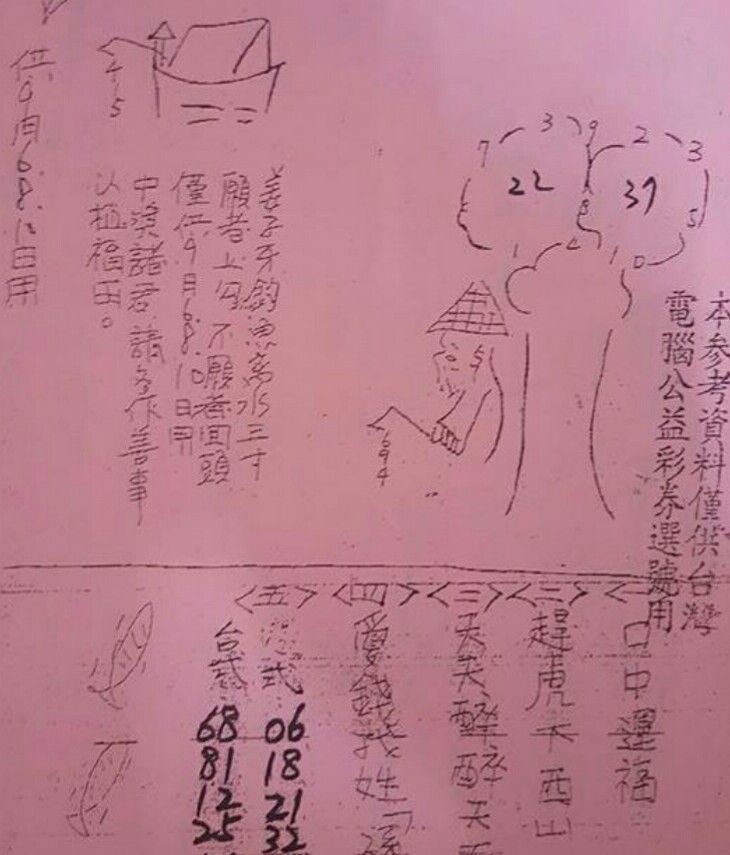 本参考資料僅供台灣
電腦公益彩券選號用
3
9
2
3
7
22
39
8
5
1
4
1
0
694
姜子牙釣魚离水三寸
願者上勾不願者回頭
僅供9月6.8.10日用
中獎諸君請多作善事
以植福田。
45
供9月6.8.10日用
口中運福
<二>
趕虎下西山
<三>
天天醉醉天
<四>
愛錢我姓
<五>
港式
06
18
21
32
台式
68
81
12
25